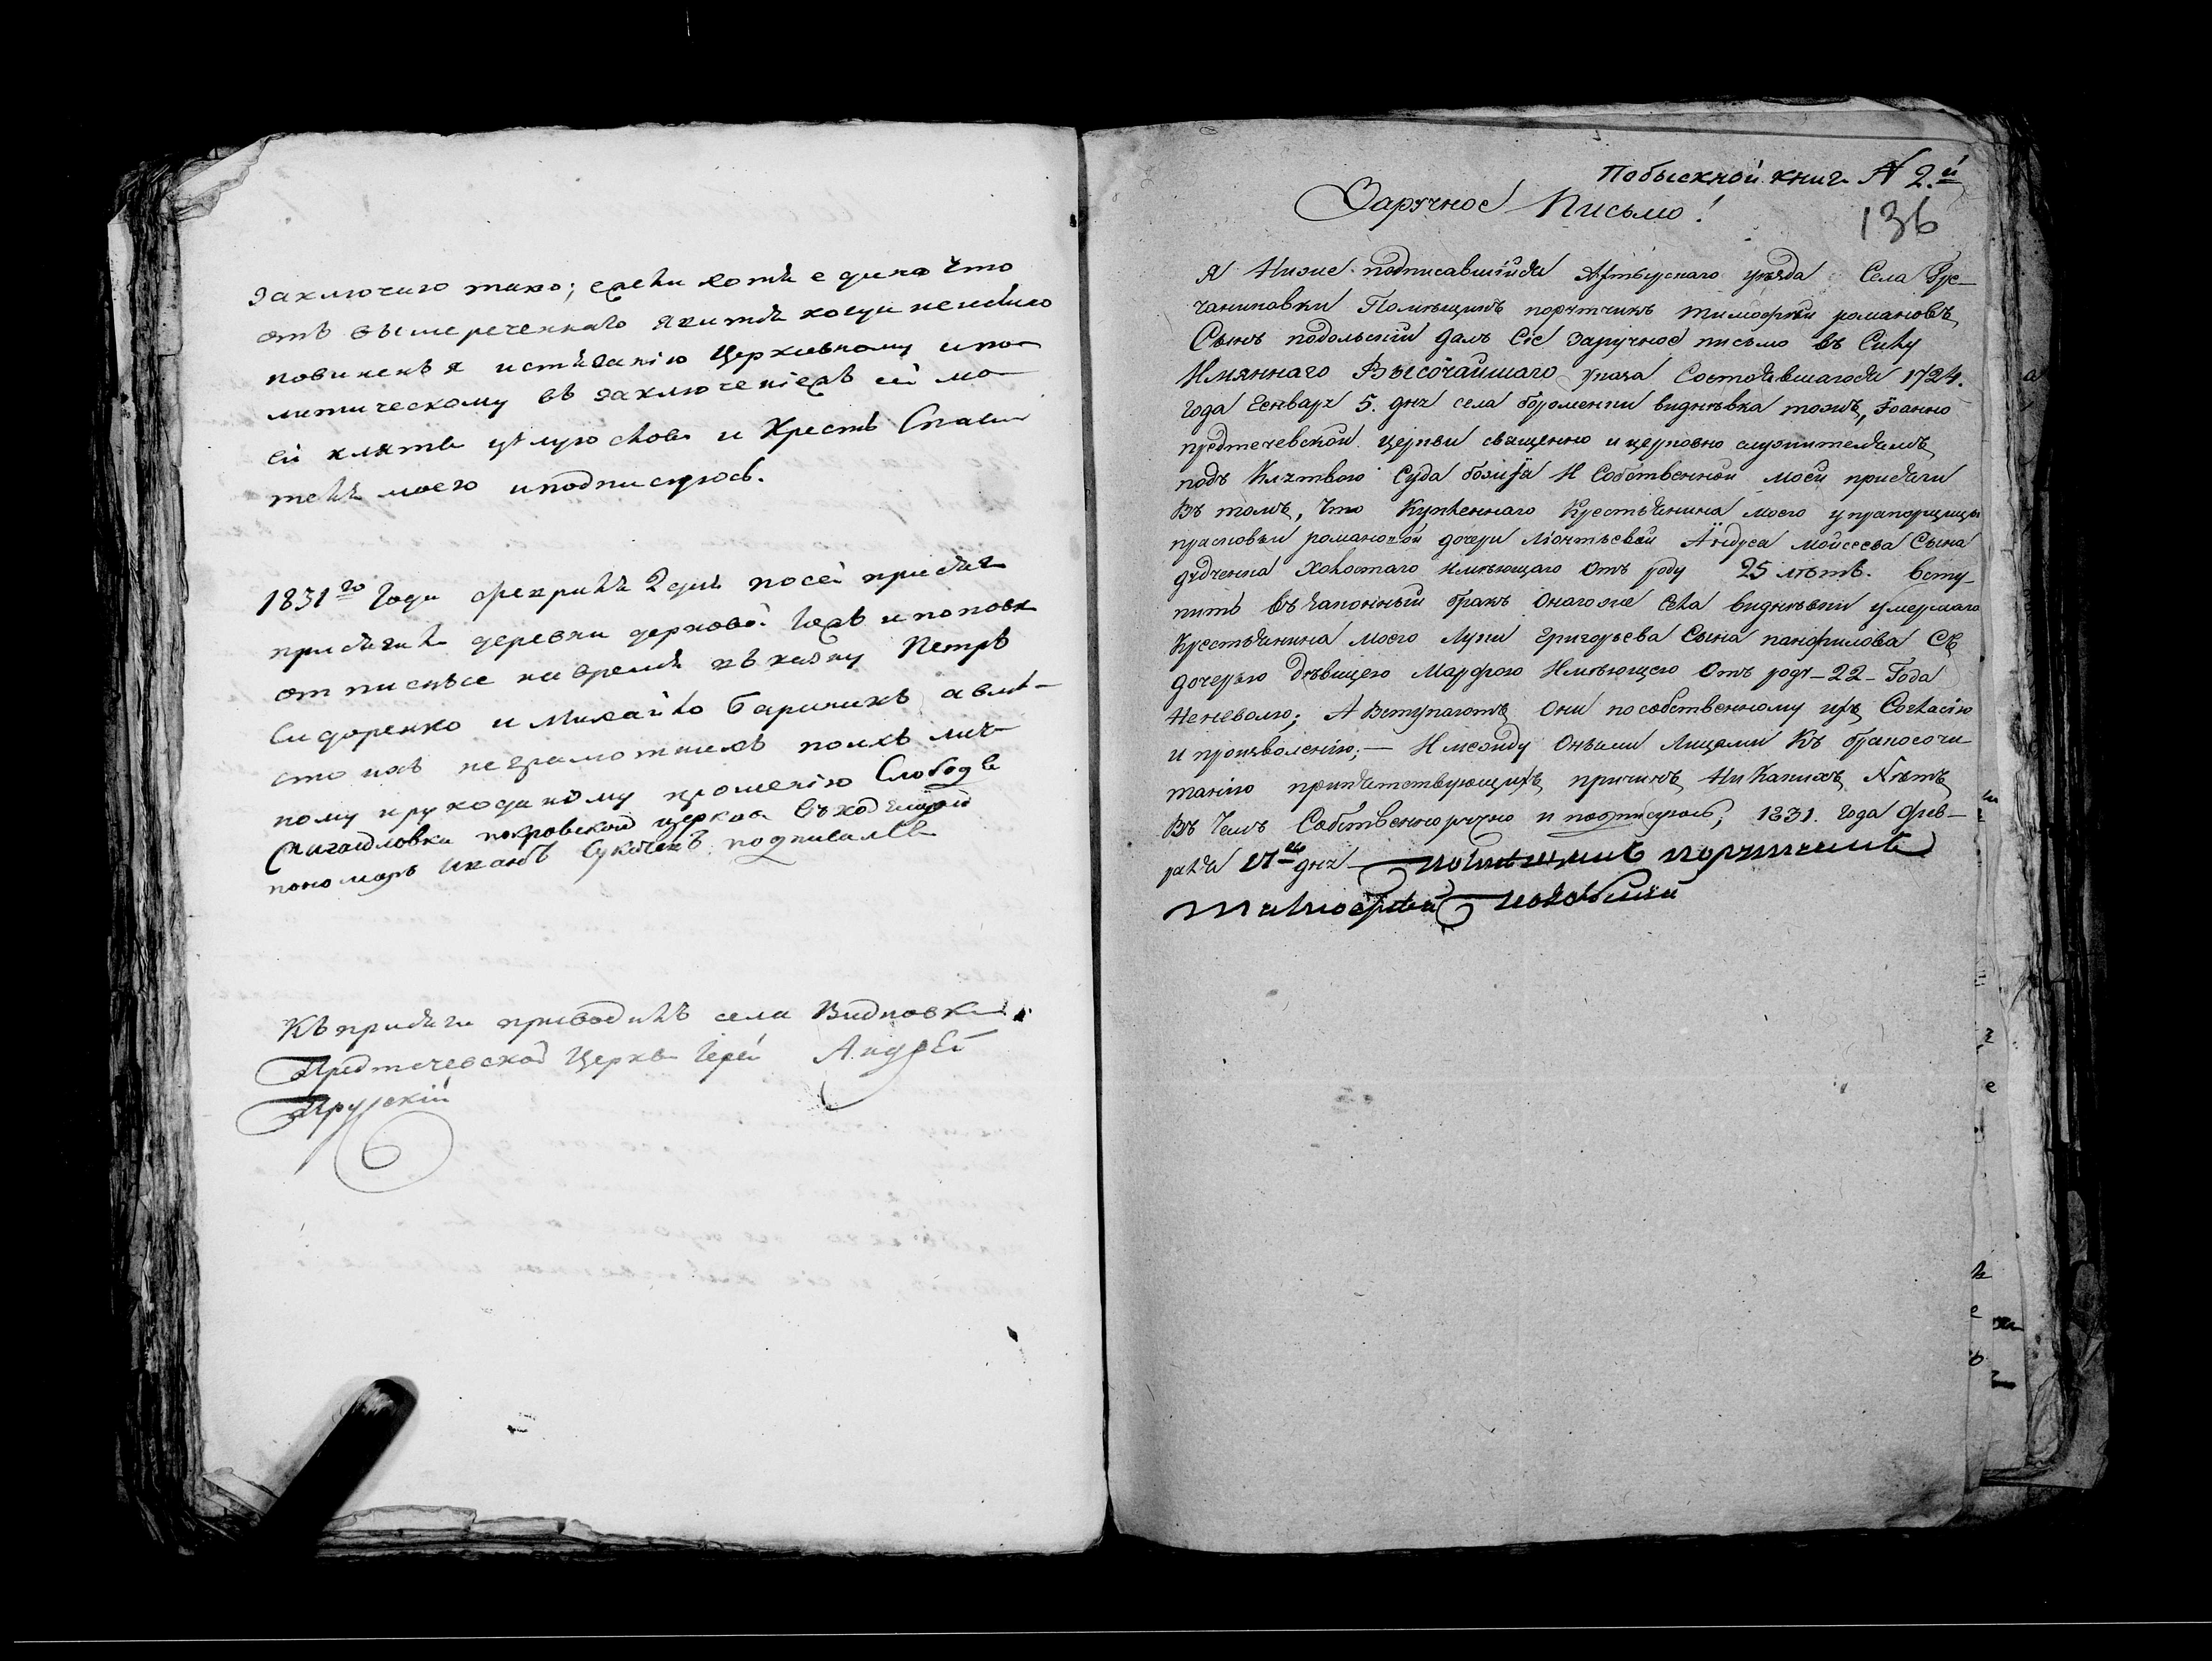 заключаю тако; ежели хотя едино что
отъ вышереченнаго
повиненъ я истязанію Церковному и по-
литическому въ заключеніехъ сей мо
ей клятвы цѣлую слова и Крестъ Спаси
теля моего и подписуюсь.
1831го Года февраля 2 дня по сей присяги
присягали деревни
Петръ
Сидоренко и Михайло а вмѣ-
сто ихъ неграмотныхъ по ихъ лич-
ному и рукоданому прошенію Слободы
покровской церкви
пономарь подписался
Къ присяги приводилъ села Видновки
Предтечевской Церкви Іерей Андрей
Прускій
Побыскной книги N 2.й
Заручное Письмо!
136
Я Ниже подписавшійся Ахтырскаго уѣзда Села Гру-
Помѣщикъ порутчикъ тимофей романовъ
Сынъ подольскій далъ Сіе Заручное письмо въ Силу
Имяннаго Высочайшаго указа Состоявшагося 1724.
Года Генваря 5. дня села бороменки виднѣвка тожъ, Іоанно
предтечевской церкви священно и церковно служителямъ
подъ Клятвою Суда божія И Собственной моей присяги
Въ томъ, Что Купленнаго Крестьянина моего у прапорщицы
прасковьи романовой дочери Леонтьевой Андрея Мойсеева Сына
холостаго имѣющаго Отъ роду 25 лѣтъ. всту-
пить въ Законный бракъ Онагоже Села виднѣвки умершаго
Крестьянина моего Луки григорьева Сына панфилова Съ
дочерью дѣвицею Марфою Имѣющею Отъ роду -22- Года
Неневолю; А Вступаютъ Они по собственному ихъ Согласію
и произволенію; — И между Оными Лицами Къ бракосочи
танію припятствующихъ причинъ НиКакихъ Нѣтъ
Въ Чемъ Собственноручно и подписуюсь; 1831. Года Фев-
раля 17го дня помѣщикъ порутчикъ
тимофей подольский